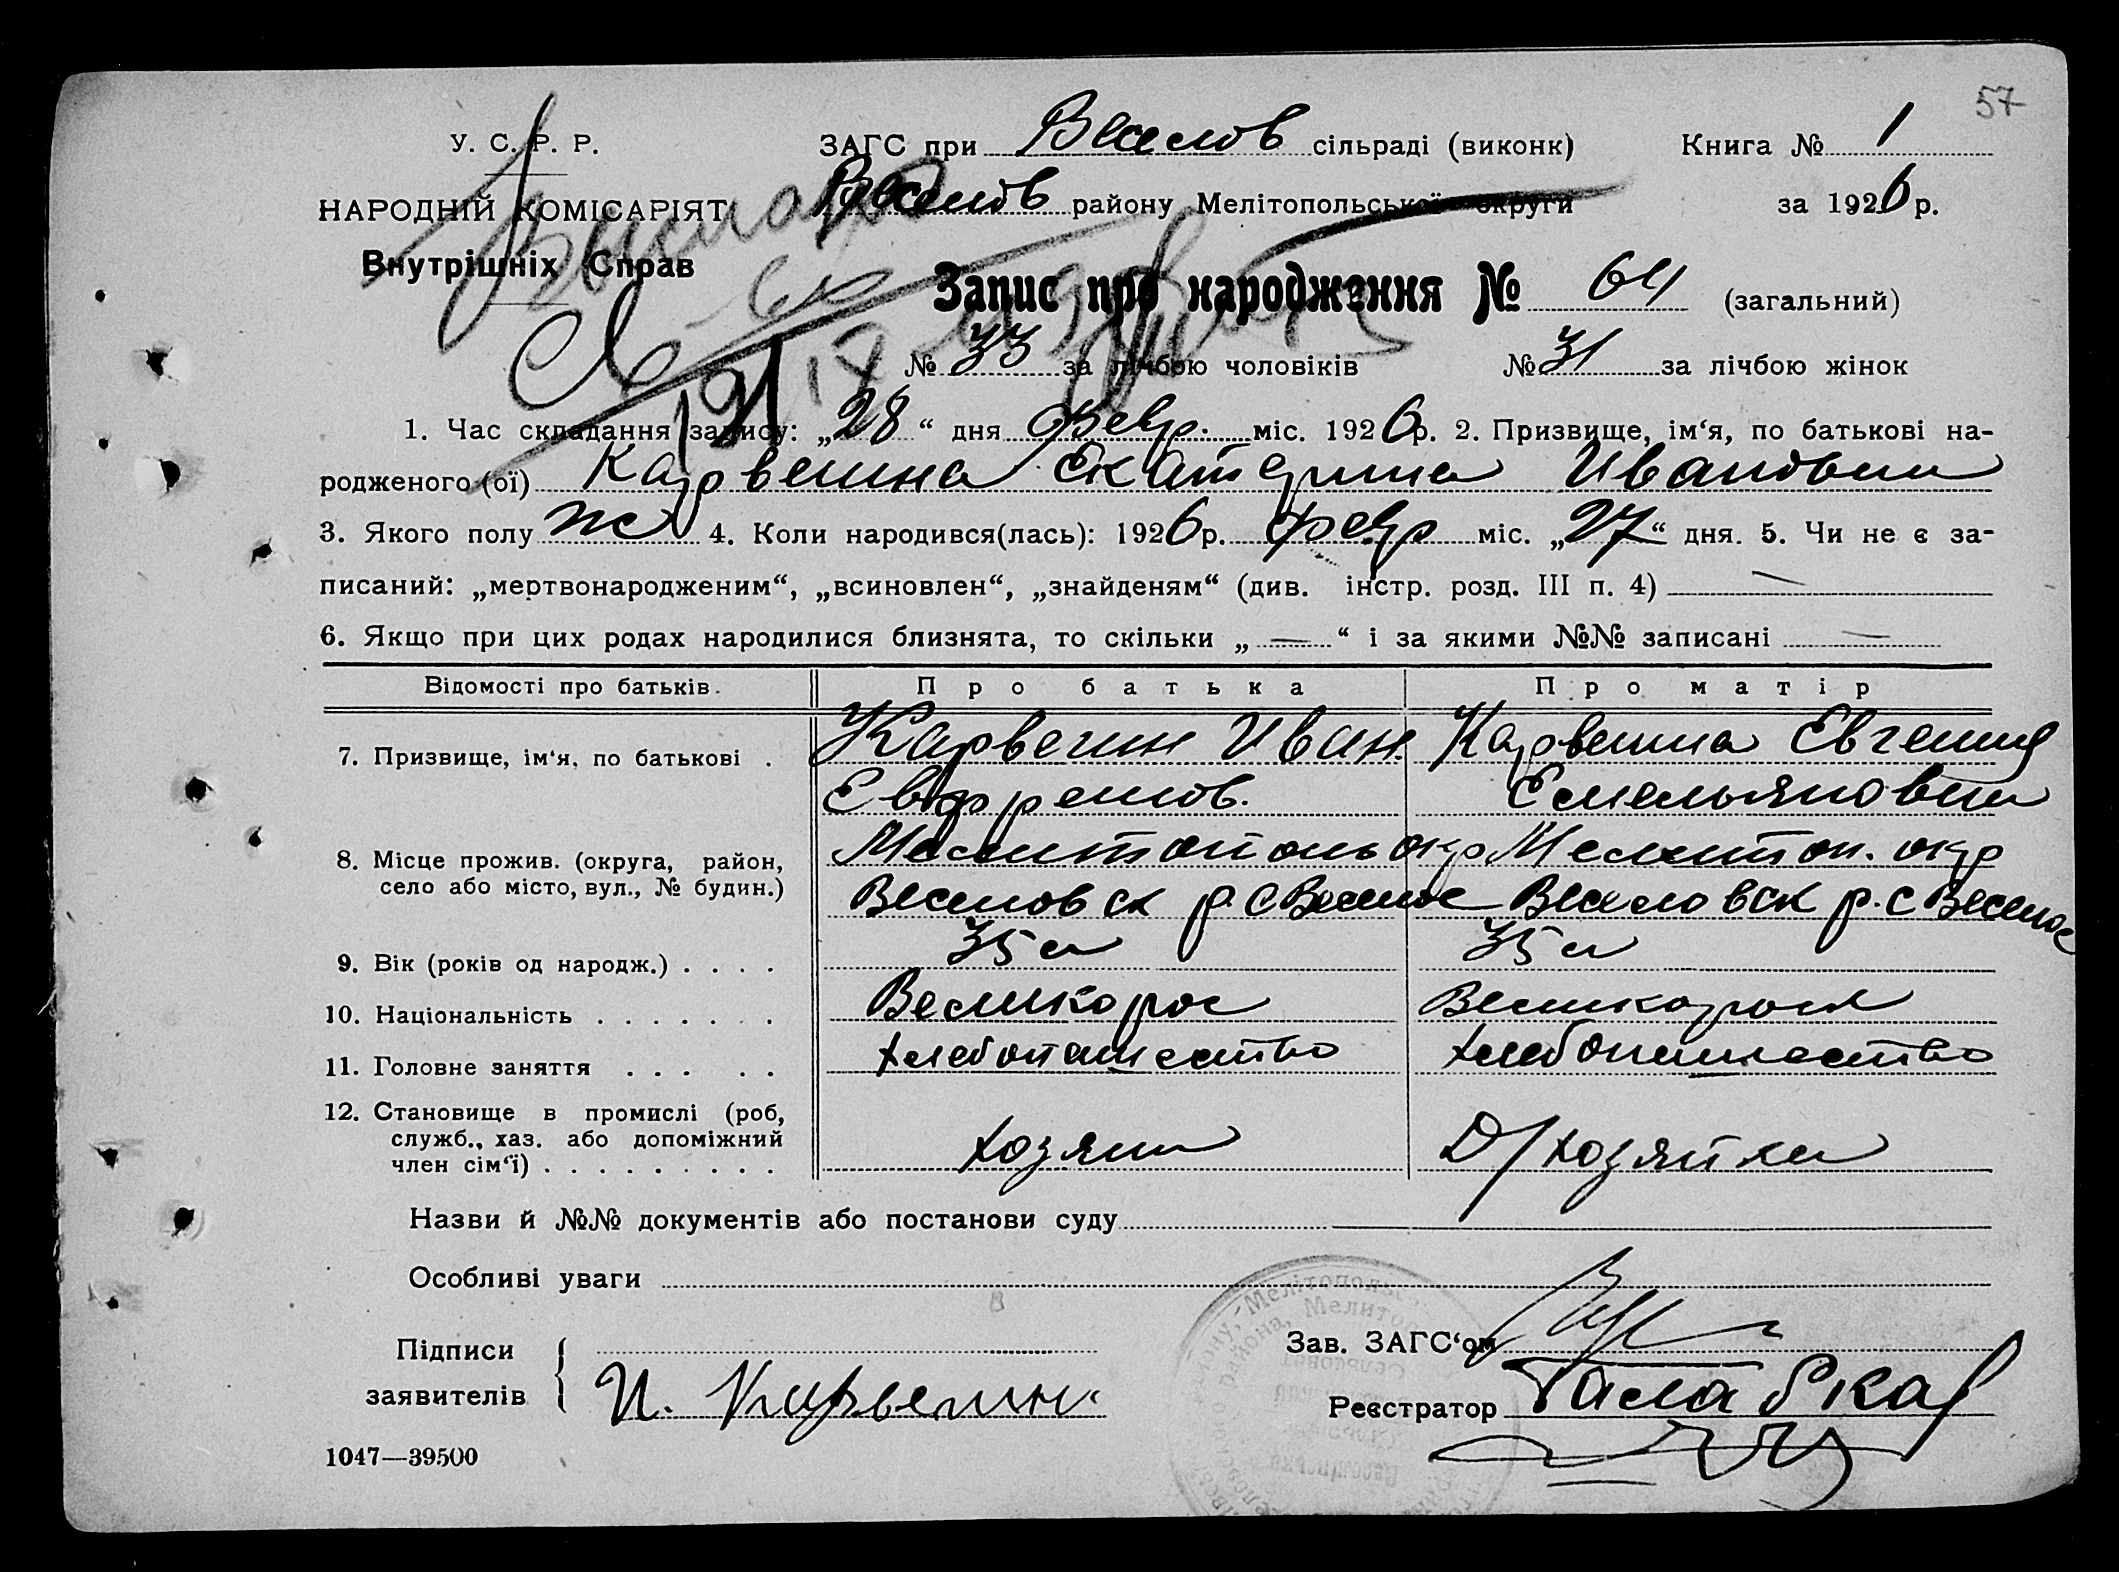 57
У. С. Р. Р.
ЗАГС при Веселов сільраді (виконк)
Книга № 1
НАРОДНІЙ КОМІСАРІЯТ
Веселов району Мелітопольської округи
за 1926 р.
Внутрішніх Справ
Запис про народження № 64 (загальний)
№ 33 за лічбою чоловіків № 31 за лічбою жінок
1. Час складання запису: „28“ дня февр. міс. 1926 р. 2. Призвище, ім‘я, по батькові на-
родженого (ої) Карвегина Екатерина Ивановна
3. Якого полу ж 4. Коли народився(лась): 1926 р. февр міс. „27“ дня. 5. Чи не є за-
писаний: „мертвонародженим“, „всиновлен“, „знайденям“ (див. інстр. розд. III п. 4) —
6. Якщо при цих родах народилися близнята, то скільки „ — “ і за якими №№ записані —
Відомості про батьків. Про батька Про матір
7. Призвище, ім‘я, по батькові . Карвегин Иван Карвегина Евгения
Емельяновна
8. Місце прожив. (округа, район, Мелитополь окр Мелитоп. окр
село або місто, вул., № будин.) Веселовск р. с Веселое Веселовск р. с Веселое
9. Вік (років од народж.) . . . . 35 л 35 л
10. Національність . . . . . . . Великорос
11. Головне заняття . . . . . хлебопашество хлебопашество
12. Становище в промислі (роб,
служб., хаз. або допоміжний хозяин Д/хозяйка
член сім‘ї) . . . . . . . . .
Назви й №№ документів або постанови суду
Особливі уваги
Підписи
Зав. ЗАГС‘ом
заявителів И. Карвегин
Реєстратор
1047—39500